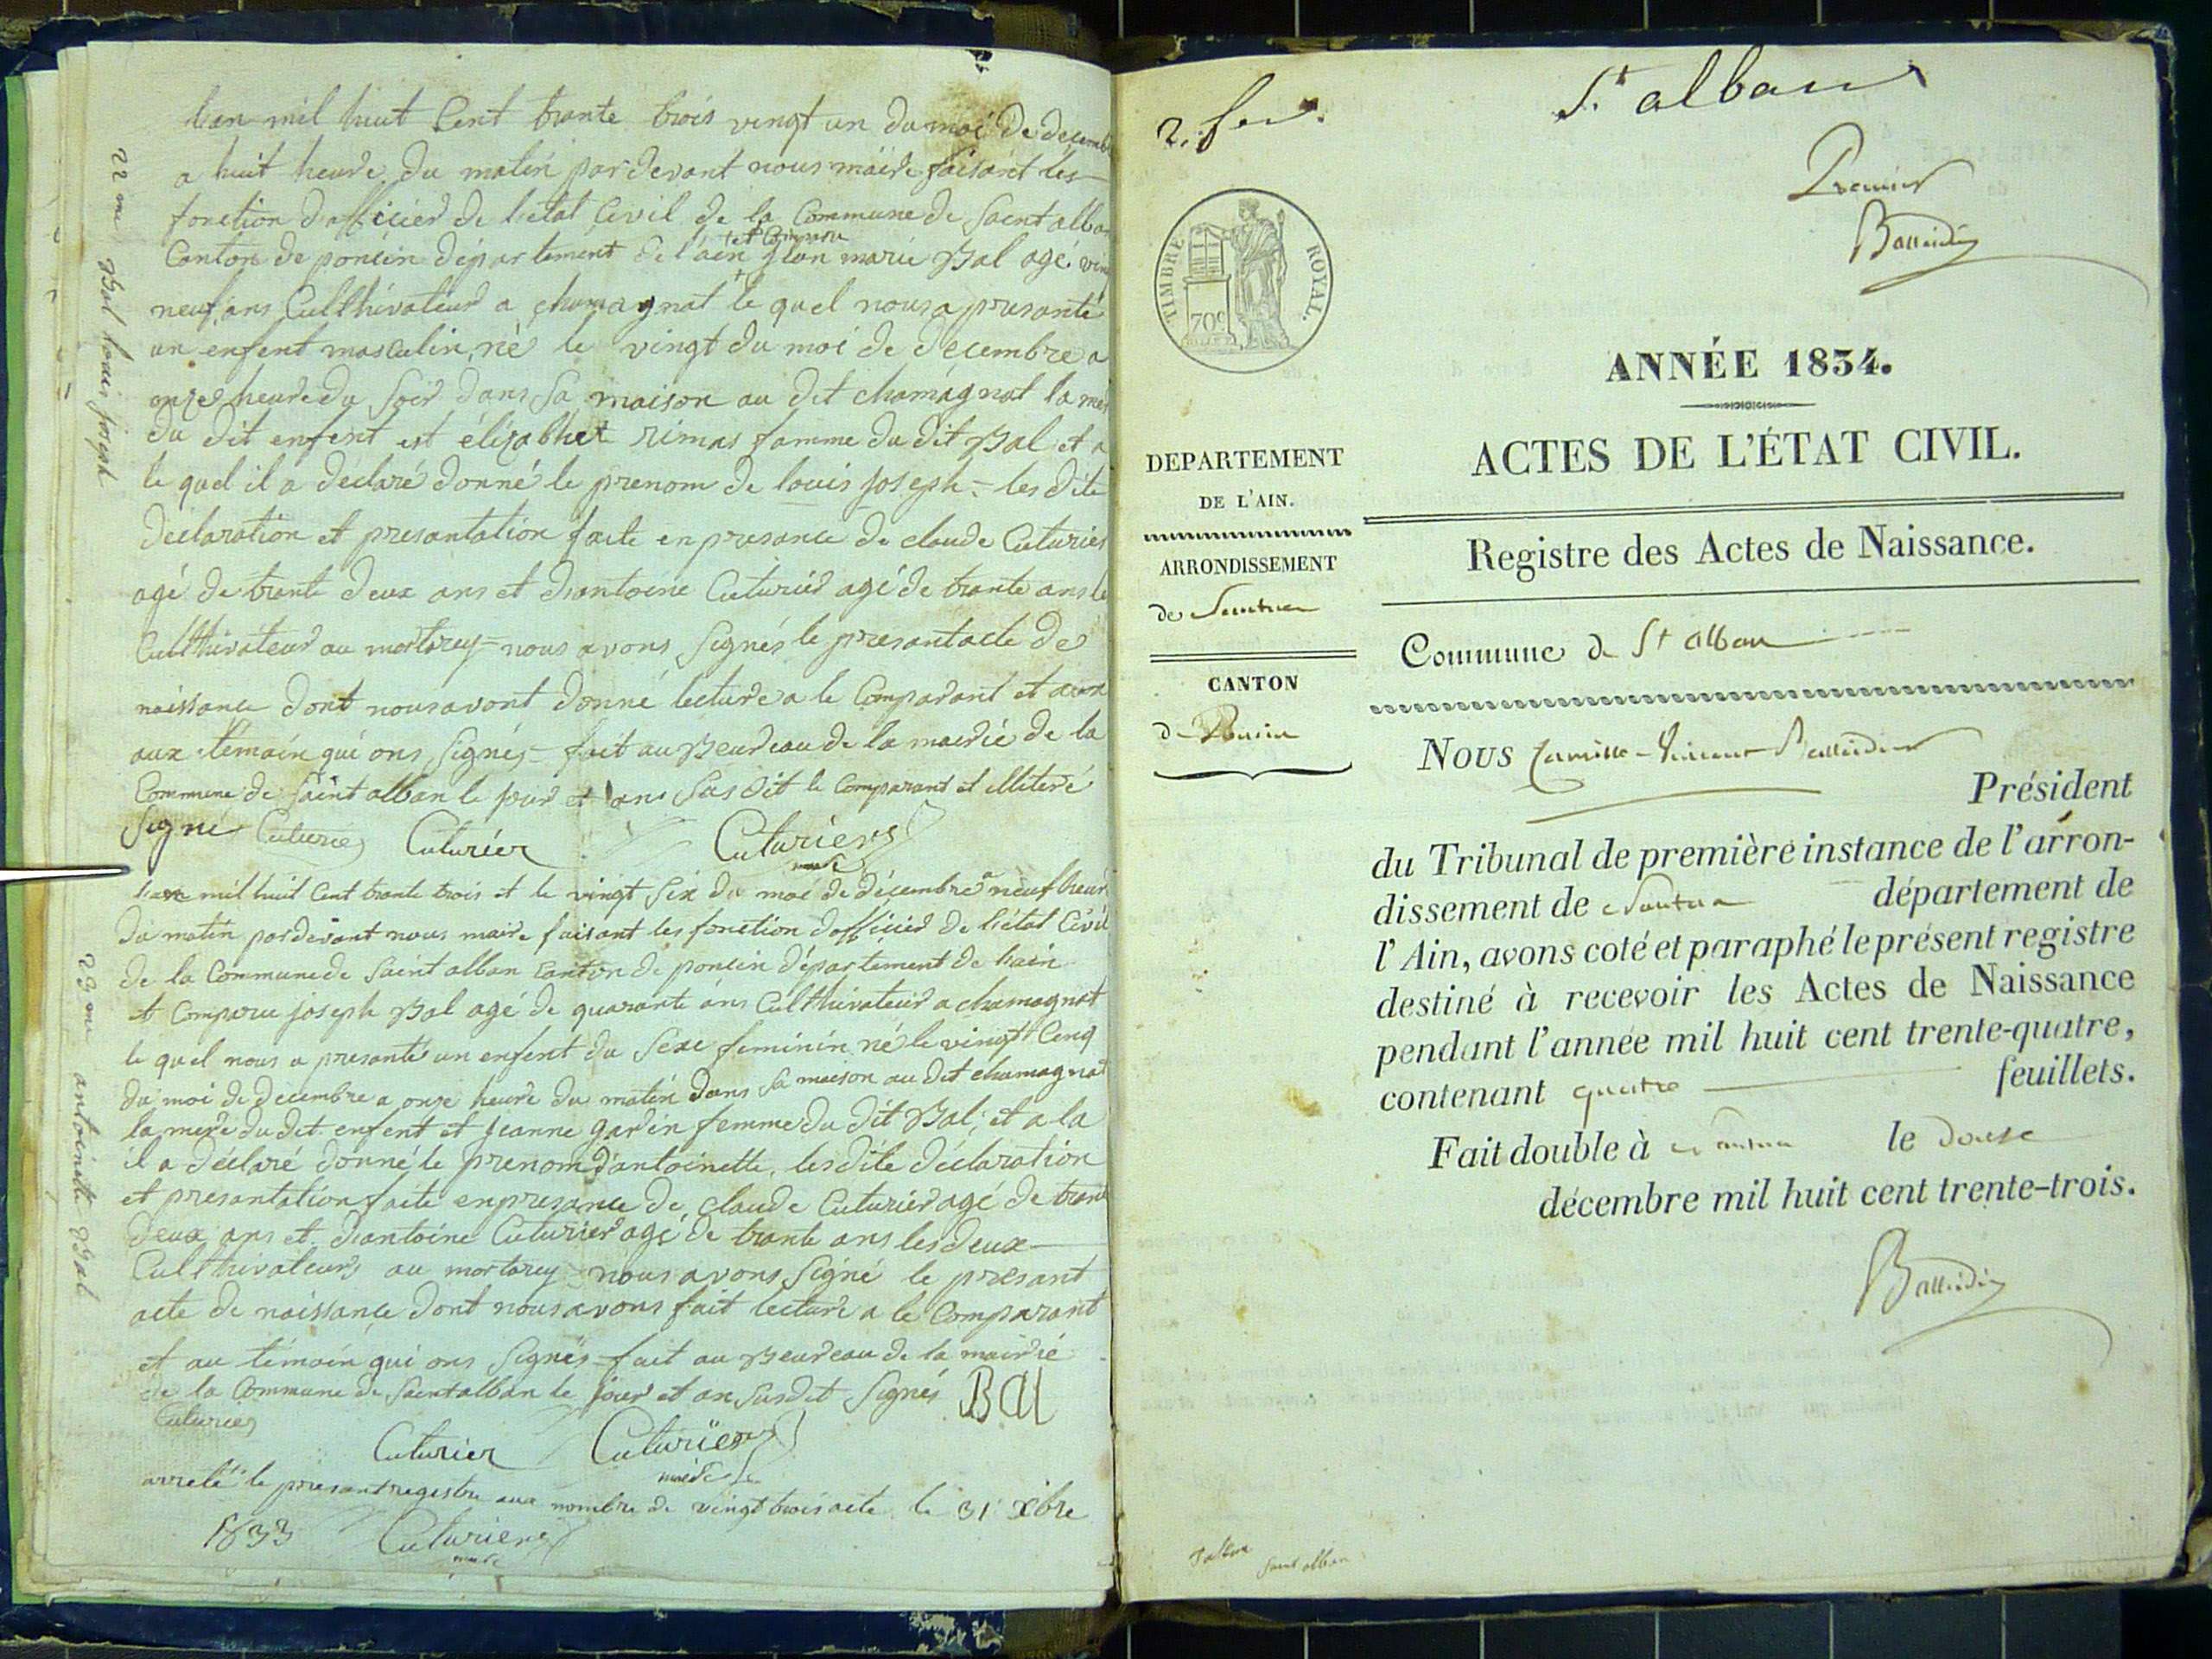 22 me Bal louis joseph
lan mil huit Cent trante trois vingt un du moi de decemb
a huit heure du matin par devant nous maire faisant les
fonction dofficier de l'etat Civil de la Commune de Saint alba
et Comparu
Canton de poncin département de l'ain jean marie Bal agé vin
neuf ans Culthivateur a chamagnat le quel nous a presanté
un enfent masculin, né le vingt du moi de décembre a
onze heure du soir dans sa maison au dit chamagnat la mer
du dit enfent est élizabhet rimas famme du dit Bal et a
le quel il a déclaré donné le prenom de louis joseph = les dite
déclaration et presantation faite en presance de claude Cuturier
agé de trante deux ans et d'antoine Cuturier agé de trante ans le
Culthivateur au mortarey = nous avons signés le presant acte de
naissance dont nous avont donné lecture a le Comparant et aux
aux témain qui ons signés - fait au Beureau de la mairie de la
Commune de saint alban le jour et ans susdit le Comparant et illiteré
signé Cuturier Cuturier Cuturier
maire
23 me antoinette Bal
lan mil huit Cent trante trois et le vingt six du moi de décembre a neuf heure
du matin par devant nous maire faisant les fonction d'officier de l'état Civil
de la Commune de Saint alban Canton de poncin département de l'ain
et Comparu joseph Bal agé de quarante ans Culthivateur a chamagnat
le quel nous a presanté un enfent du sexe feminin né le vingt Cinq
du moi de decembre a onze heure du matin dans sa maison au dit chamagnat
la mere du dit enfent et jeanne gardin femme du dit Bal; et a la
il a déclaré donné le prenom d'antoinette, les dite déclaration
et presantation faite en presance de claude Cuturier agé de trante
deux ans et d'antoine Cuturier agé de trante ans les deux
Culthivateurs au mortarey nous avons signé le presant
acte de naissance dont nous avons fait lecture a le Comparant
et au témain qui ons signés fait au Beureau de la mairie
de la Commune de Saint alban le jour et an susdit signés Bal
Cuturier
Cuturier Cuturier
maire
arreté le presant registre aux nombre de vingt trois acte le 31 xbre
1833 Cuturier
maire
2. feu.
St alban
Premier
TIMBRE ROYAL.
70c
ANNÉE 1834.
ACTES DE L'ÉTAT CIVIL.
Registre des Actes de Naissance.
DEPARTEMENT
DE L'AIN.
ARRONDISSEMENT
de Nantua
CANTON
de Poncin
Commune de St alban
Nous Camille-Vincent
Président
du Tribunal de première instance de l'arron-
dissement de Nantua département de
l'Ain, avons coté et paraphé le présent registre
destiné à recevoir les Actes de Naissance
pendant l'année mil huit cent trente-quatre,
contenant quatre feuillets.
Fait double à Nantua le douze
décembre mil huit cent trente-trois.
saint alban